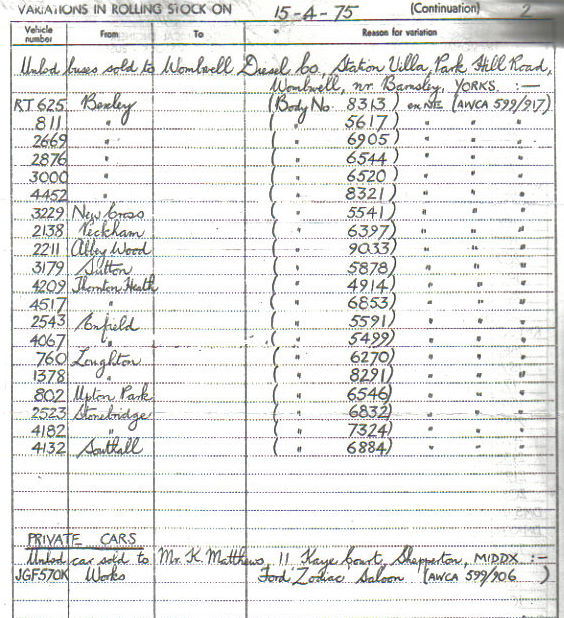 VARIATIONS IN ROLLING STOCK ON 15-4-75 (Continuation) 2
Vehicle number From To Reason for variation
Unlsd buses sold to Wombwell Diesel Co, Station Villa, Park Hill Road,
Wombwell, nr. Barnsley, YORKS :—
RT 625 Bexley (Body No. 8313) ex NLE (AWCA 599/917)
811 " ( " 5617) " " "
2669 " ( " 6905) " " "
2876 " ( " 6544) " " "
3000 " ( " 6520) " " "
4452 " ( " 8321) " " "
3229 New Cross ( " 5541) " " "
2138 Peckham ( " 6397) " " "
2211 Abbey Wood ( " 9033) " " "
3179 Sutton ( " 5878) " " "
4209 Thornton Heath ( " 4914) " " "
4517 " ( " 6853) " " "
2543 Enfield ( " 5591) " " "
4067 " ( " 5499) " " "
760 Loughton ( " 6270) " " "
1378 " ( " 8291) " " "
802 Upton Park ( " 6546) " " "
2523 Stonebridge ( " 6832) " " "
4182 " ( " 7324) " " "
4132 Southall ( " 6884) " " "
PRIVATE CARS
Unlsd car sold to Mr. K. Matthews, 11 Kaye Court, Shepperton, MIDDX :—
JGF570K Works Ford Zodiac Saloon (AWCA 599/906 )